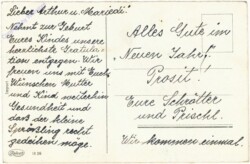 Lieber Arthur u. Mariedi!
Nehmt zur Geburt
Eures Kindes unsere
herzlichste Gratula-
tion entgegen. Wir
freuen uns mit Euch.
Wünschen Mutter
und Kind weiterhin
Gesundheit und
dass der kleine
Sprössling recht
gedeihen möge.
Alles Gute im
Neuen Jahr!
Prosit!
Eure Schröller
und Prischl.
Wir kommen einmal.